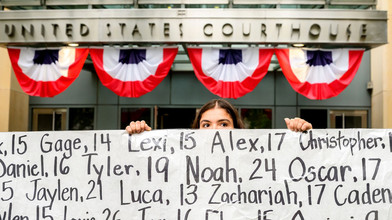 UNITED STATES COURTHOUSE
15 Gage, 14 Lexi, 15 Alex, 17 Christopher,
Daniel, 16 Tyler, 19 Noah, 24 Oscar, 17
Jaylen, 21 Luca, 13 Zachariah, 17 Caden